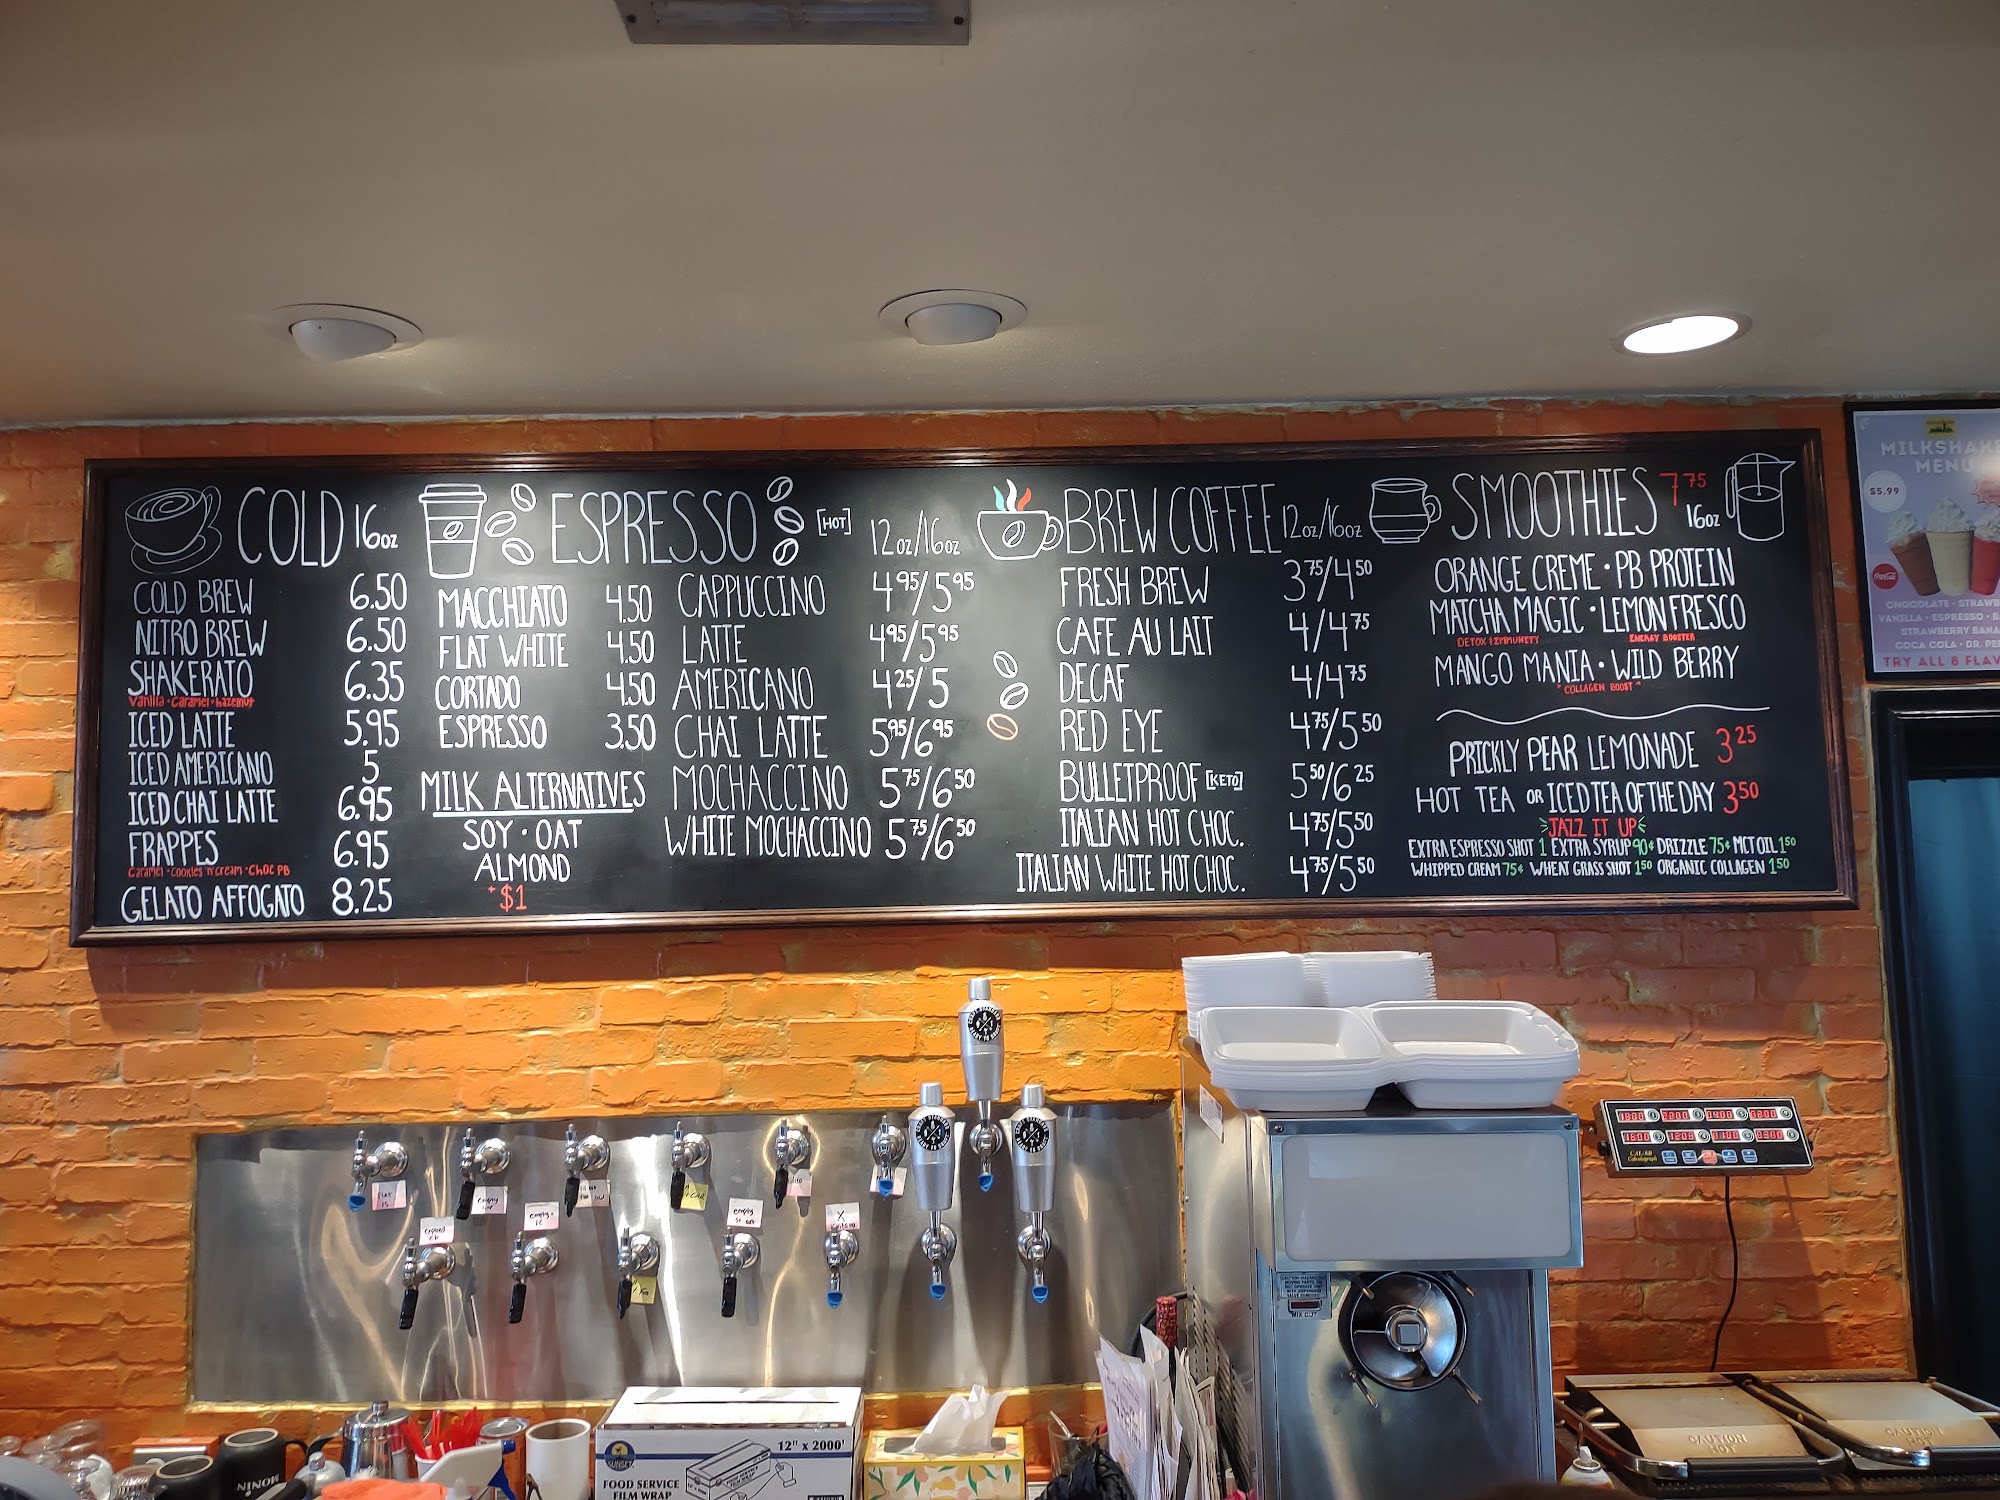 COLD 16oz
COLD BREW 6.50
NITRO BREW 6.50
SHAKERATO 6.35
Vanilla · Caramel · hazelnut
ICED LATTE 5.95
ICED AMERICANO 5
ICED CHAI LATTE 6.95
FRAPPES 6.95
Caramel · Cookies 'n' Cream · Choc PB
GELATO AFFOGATO 8.25
ESPRESSO [HOT] 12oz/16oz
MACCHIATO 4.50
FLAT WHITE 4.50
CORTADO 4.50
ESPRESSO 3.50
MILK ALTERNATIVES
SOY · OAT
ALMOND
+$1
CAPPUCCINO 4.95/5.95
LATTE 4.95/5.95
AMERICANO 4.25/5
CHAI LATTE 5.95/6.95
MOCHACCINO 5.75/6.50
WHITE MOCHACCINO 5.75/6.50
BREW COFFEE 12oz/16oz
FRESH BREW 3.75/4.50
CAFE AU LAIT 4/4.75
DECAF 4/4.75
RED EYE 4.75/5.50
BULLETPROOF [KETO] 5.50/6.25
ITALIAN HOT CHOC. 4.75/5.50
ITALIAN WHITE HOT CHOC. 4.75/5.50
SMOOTHIES 7.75
16oz
ORANGE CREME · PB PROTEIN
MATCHA MAGIC · LEMON FRESCO
DETOX + IMMUNITY ENERGY BOOSTER
MANGO MANIA · WILD BERRY
"COLLAGEN BOOST"
PRICKLY PEAR LEMONADE 3.25
HOT TEA OR ICED TEA OF THE DAY 3.50
JAZZ IT UP
EXTRA ESPRESSO SHOT 1 EXTRA SYRUP 90¢ DRIZZLE 75¢ MCT OIL 1.50
WHIPPED CREAM 75¢ WHEAT GRASS SHOT 1.50 ORGANIC COLLAGEN 1.50
MILKSHAKE
MENU
$5.99
Coca-Cola
CHOCOLATE · STRAWB
VANILLA · ESPRESSO · B
STRAWBERRY BANA
COCA COLA · DR. PE
TRY ALL 8 FLAV
FLAT
empty
empty
empty
CAL-8B
MIX OUT
MONIN
SUNSET
12" x 2000'
FOOD SERVICE
FILM WRAP
CAUTION
HOT
CAUTION
HOT